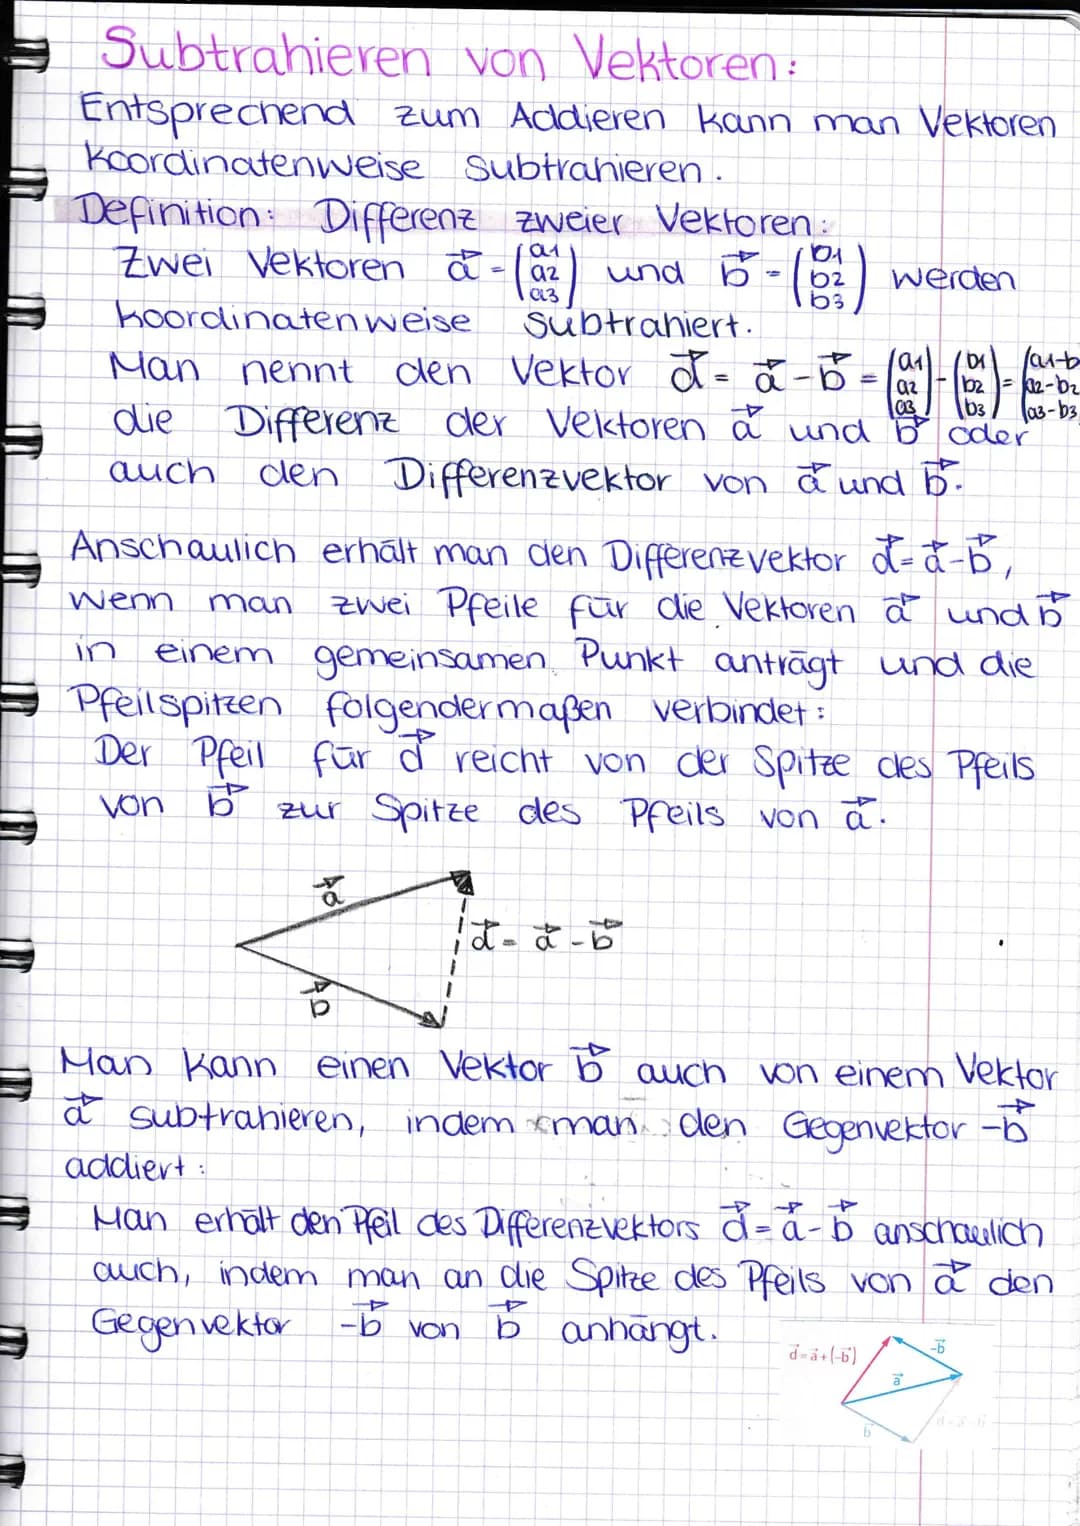 Subtrahieren von Vektoren:
Entsprechend zum Addieren kann man Vektoren
koordinatenweise subtrahieren.
Definition: Differenz zweier Vektoren:
Zwei Vektoren a⃗ = (a1 a2 a3) und b⃗ = (b1 b2 b3) werden
koordinatenweise subtrahiert.
Man nennt den Vektor d⃗ = a⃗ - b⃗ = (a1 a2 a3) - (b1 b2 b3) = (a1-b a2-b2 a3-b3
die Differenz der Vektoren a⃗ und b⃗ oder
auch den Differenzvektor von a⃗ und b⃗.
Anschaulich erhält man den Differenzvektor d⃗ = a⃗ - b⃗,
wenn man zwei Pfeile für die Vektoren a⃗ und b⃗
in einem gemeinsamen Punkt anträgt und die
Pfeilspitzen folgendermaßen verbindet:
Der Pfeil für d⃗ reicht von der Spitze des Pfeils
von b⃗ zur Spitze des Pfeils von a⃗.
a⃗
d⃗ = a⃗ - b⃗
b⃗
Man kann einen Vektor b⃗ auch von einem Vektor
a⃗ subtrahieren, indem man den Gegenvektor -b⃗
addiert:
Man erhält den Pfeil des Differenzvektors d⃗ = a⃗ - b⃗ anschaulich
auch, indem man an die Spitze des Pfeils von a⃗ den
Gegenvektor -b⃗ von b⃗ anhängt.
d⃗ = a⃗ + (-b⃗)
-b⃗
a⃗
d⃗ = a⃗ - b⃗
b⃗